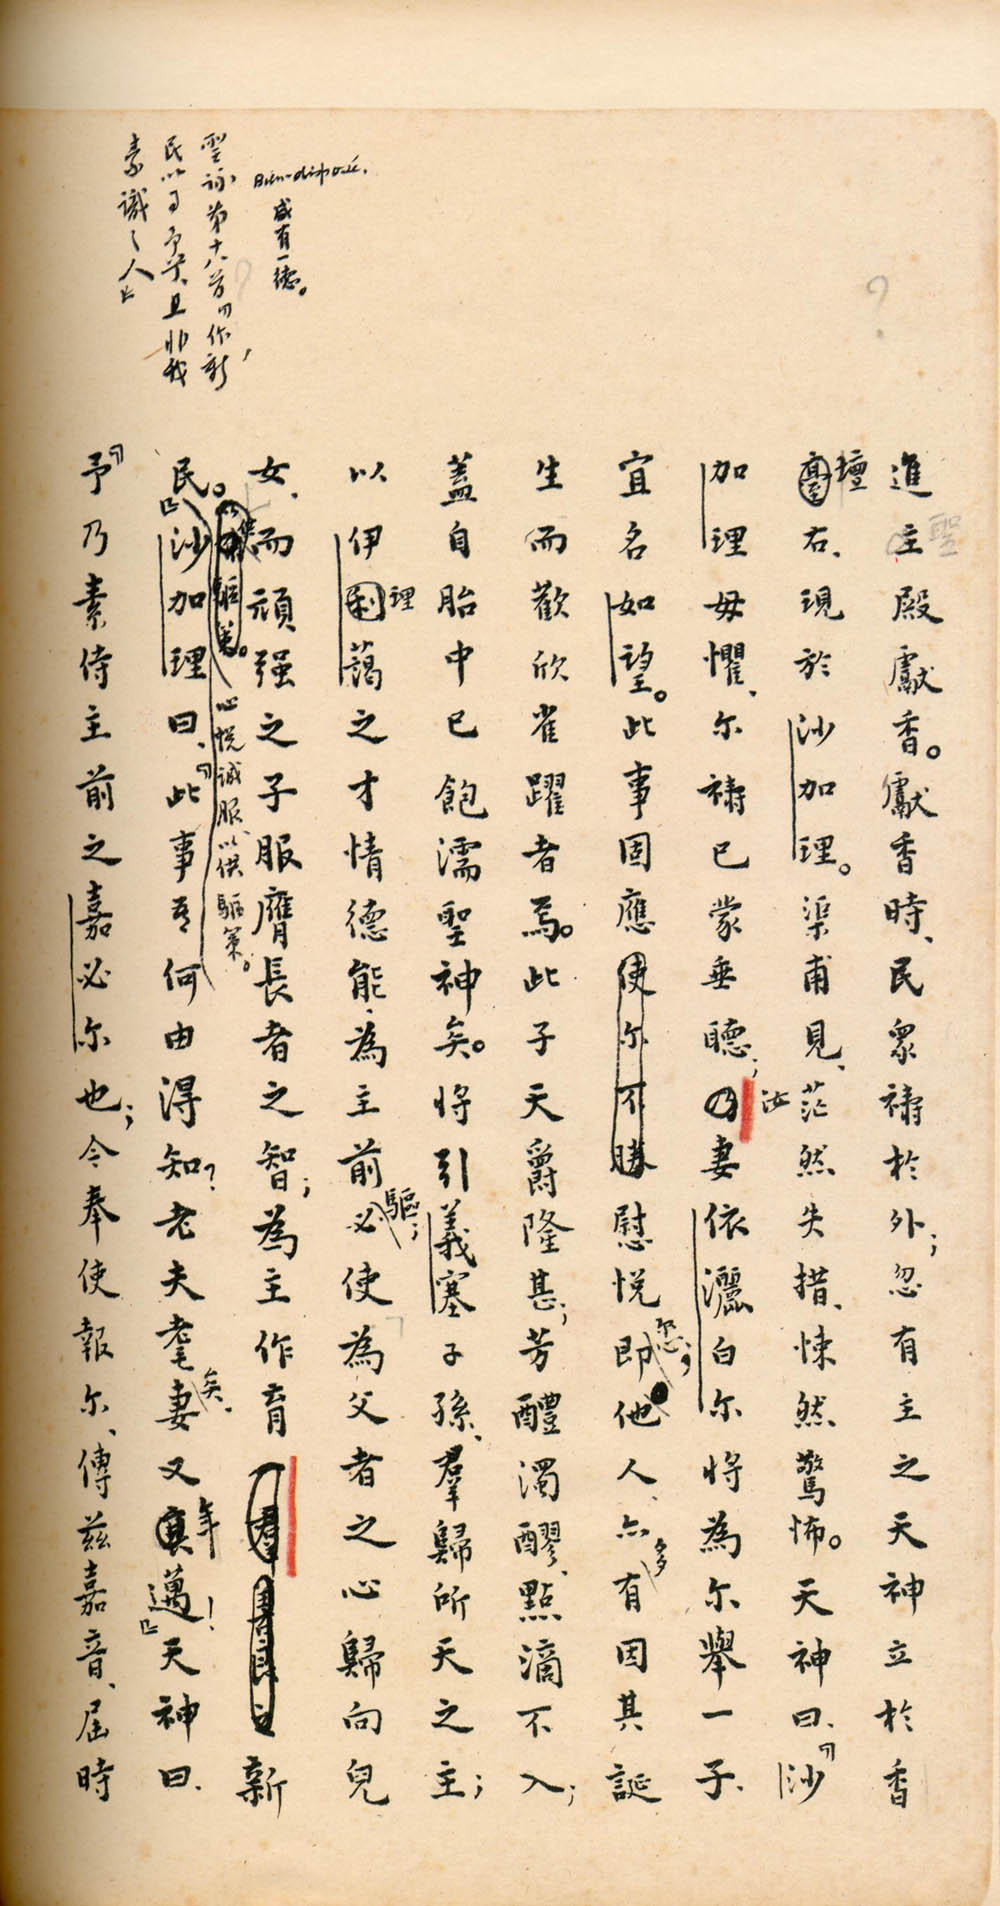 Bien-disposé.
咸有一德。
聖詠第十八首「你新
民以事予矣、且非我
素識之人」
進主殿獻香。獻香時、民眾禱於外；忽有主之天神立於香
聖
壇
臺右、現於沙加理。渠甫見、茫然失措、悚然驚怖。天神曰、「沙
加理毋懼、尔禱已蒙垂聽；乃妻依灑白尔將為尔舉一子、
汝
宜名如望。此事固應使尔不勝慰悅即他人、亦有因其誕
怨；
多
生而歡欣雀躍者焉。此子天爵隆甚；芳醴濁醪、點滴不入；
蓋自胎中已飽濡聖神矣。將引義塞子孫、羣歸所天之主；
以伊利藹之才情德能、為主前必使為父者之心歸向兒
理
驅；
女、而頑强之子服膺長者之智；為主作育羣新
心悅誠服、以供驅策。
驅策。
民。」沙加理曰、「此事吾何由得知？老夫耄妻又邁！」天神曰、
矣、
年
「予乃素侍主前之嘉必尔也；今奉使報尔、傳茲嘉音、屆時